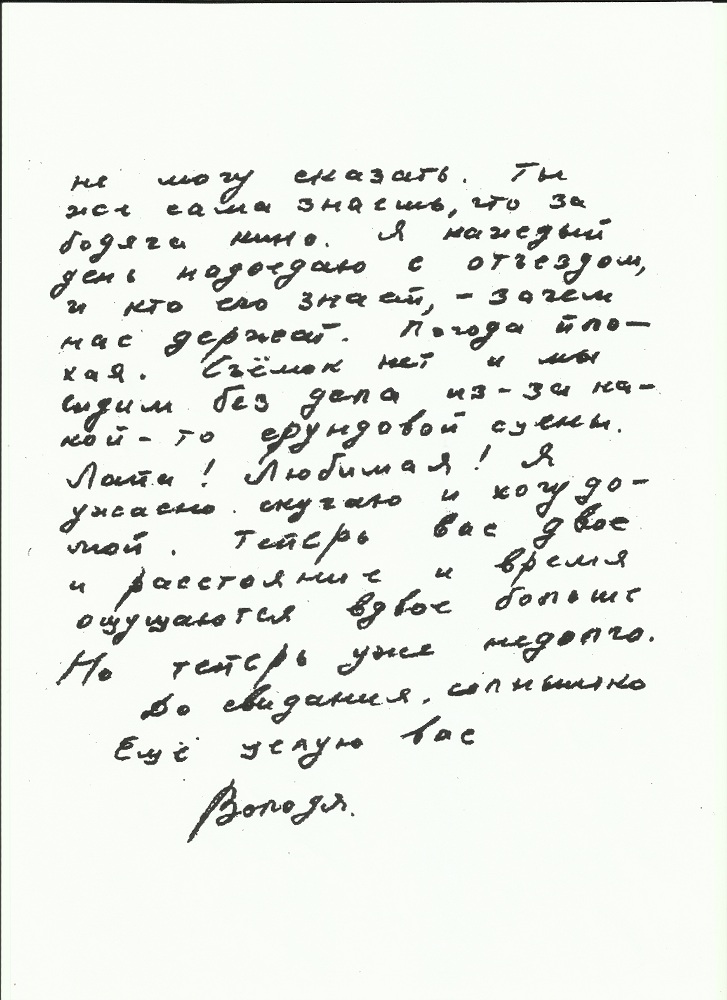 не могу сказать. Ты
же сама знаешь, что за
бодяга кино. Я каждый
день надоедаю с отъездом,
и кто его знает, – зачем
нас держат. Погода пло–
хая. Съёмок нет и мы
сидим без дела из–за ка–
кой–то ерундовой сцены.
Лапа! Любимая! Я
ужасно скучаю и хочу до–
мой. Теперь вас двое
и расстояние и время
ощущаются вдвое больше
Но теперь уже недолго.
До свидания, солнышко
Ещё целую вас
Володя.